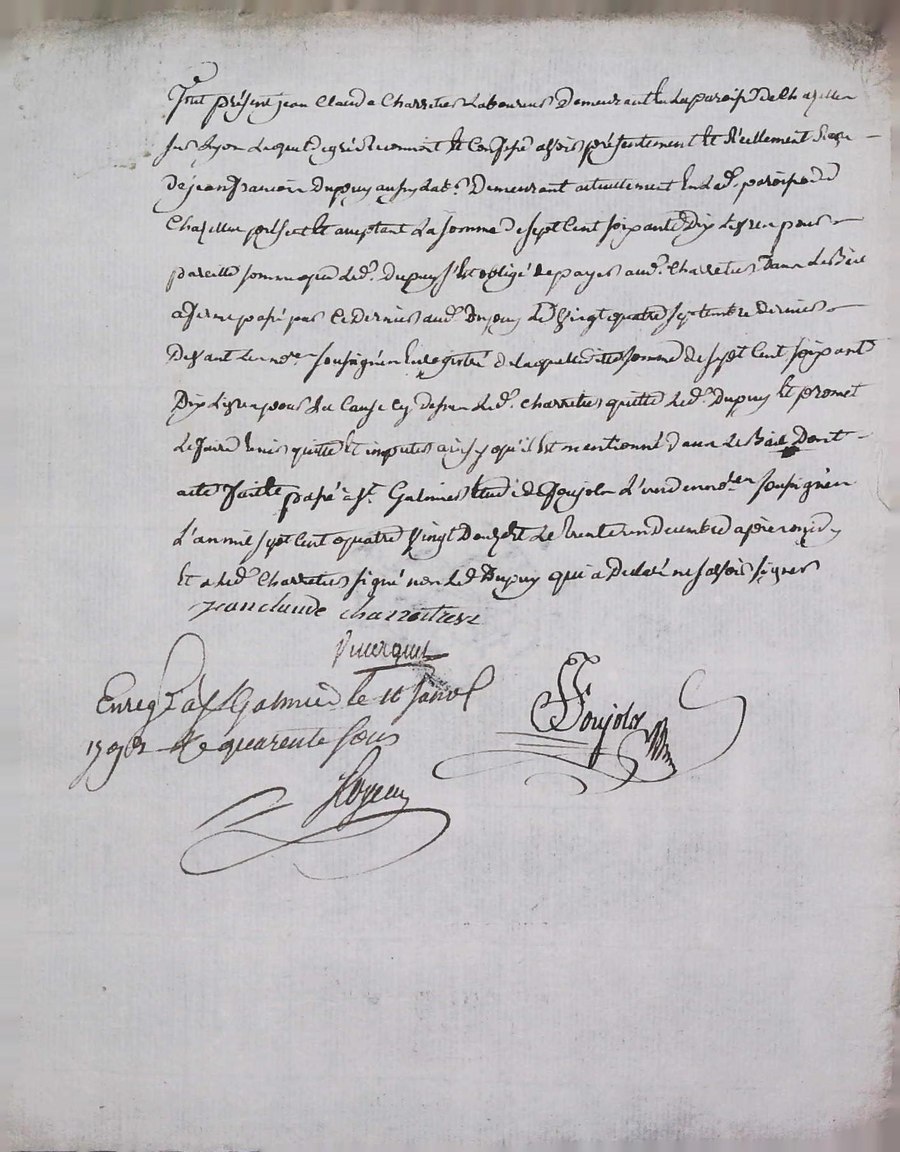 fut présent jean Claude Charretier Laboureur Demeurant en La paroisse de Chazelles
sur Lyon Lequel de gré Reconnoit Et Confesse avoir présentement Et Réellement Reçu
de jean françois Dupuy aussy lab.r Demeurant actuellement En Lad. paroisse de
Chazelles présent Et acceptant La somme de sept Cent soixante Dix Livres pour
pareille somme que Led. Dupuy s'Est obligé de payer aud. Charretier Dans Le Bail
a ferme passé par Ce Dernier aud. Dupuy Le Vingt quatre septembre Dernier
Devant Le no.re soussigné Enregistré de laquelle ditte somme de sept Cent soixante
Dix Livres pour La Cause Cy dessus Led. Charretier quitte Led. Dupuy Et promet
Le faire tenir quitte Et imputer ainsy qu'il Est mentionné Dans Le Bail Dont
acte faite passé a S.t Galmier Etude de Poujolx L'un des no.res soussignés
L'an mil sept Cent quatre Vingt Douze Et Le trente un Decembre après midy
Et a Led. Charretier signé non Led. Dupuy qui a Declaré ne savoir signer
jean claude charretier

Enreg.é à S.t Galmier le 11 janv.
1793 - quarente sous
Poujolx